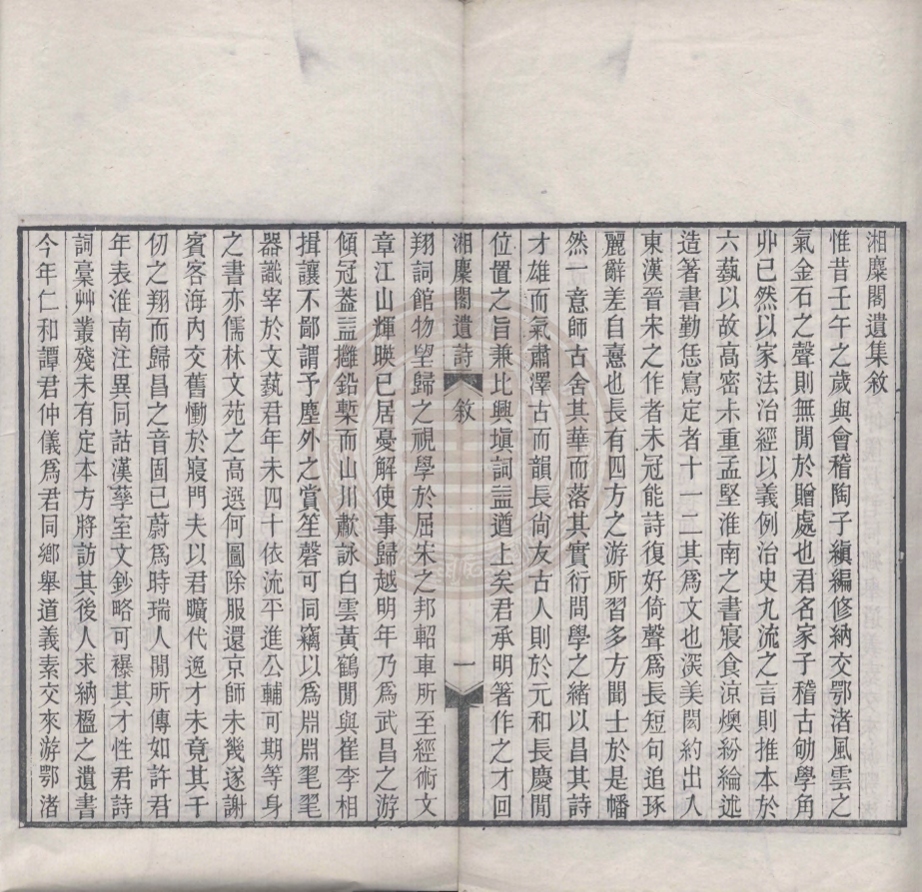 湘麋閣遺集敘
惟昔壬午之歲與會稽陶子縝編修納交鄂渚風雲之
氣金石之聲則無閒於贈處也君名家子稽古劬學角
丱已然以家法治經以義例治史九流之言則推本於
六蓺以故高密未重孟堅淮南之書寢食涼燠紛綸述
造箸書勤恁寫定者十一二其爲文也深美閎約出入
東漢晉宋之作者未冠能詩復好倚聲爲長短句追琢
麗辭差自憙也長有四方之游所習多方聞士於是幡
然一意師古舍其華而落其實衍問學之緒以昌其詩
才雄而氣肅澤古而韻長尙友古人則於元和長慶閒
位置之旨兼比興塡詞益遒上矣君承明箸作之才回
湘麋閣遺詩 敘 一
翔詞館物望歸之視學於屈宋之邦軺車所至經術文
章江山輝暎已居憂解使事歸越明年乃爲武昌之游
傾冠蓋益攡鉛槧而山川歗詠白雲黃鶴閒與崔李相
揖讓不鄙謂予塵外之賞笙磬可同竊以爲淵淵毣毣
器識宰於文蓺君年未四十依流平進公輔可期等身
之書亦儒林文苑之高選何圖除服還京師未幾遂謝
賓客海內交舊慟於寢門夫以君曠代逸才未竟其千
仞之翔而歸昌之音固已蔚爲時瑞人閒所傳如許君
年表淮南注異同詁漢孳室文鈔略可襮其才性君詩
詞稾艸叢殘未有定本方將訪其後人求納楹之遺書
今年仁和譚君仲儀爲君同鄉舉道義素交來游鄂渚